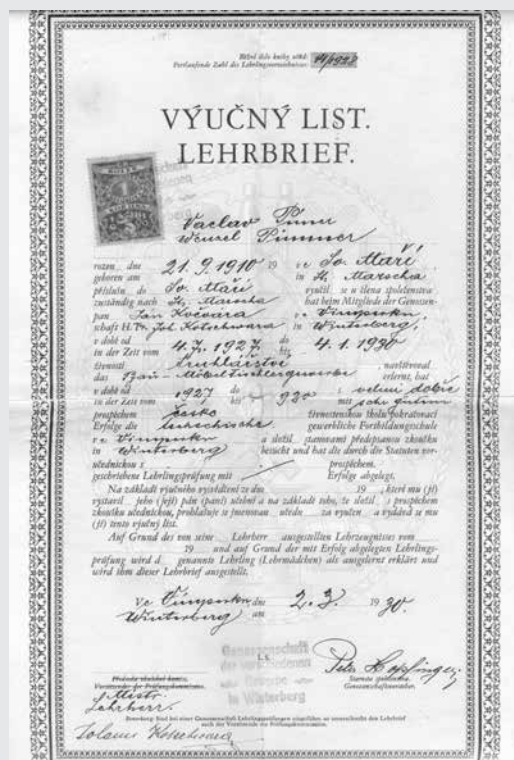 Běžné číslo knihy učňů:
Fortlaufende Zahl des Lehrlingsverzeichnisses:
VÝUČNÝ LIST.
LEHRBRIEF.
Vaclav
Wenzel
rozen dne 21. 9. 1910 19 ve Sv. Maří
geboren am in St. Maroscha
příslušn do Sv. Maří vyučil se u člena společenstva
zuständig nach St. Maroscha hat beim Mitgliede der Genossen-
pan Jan Kočvara ve Vimperku
schaft H. Joh. Kotschwara in Winterberg,
v době od 4. 7. 1927 do 4. 1. 1930
in der Zeit vom bis
živnosti truhlářství navštěvoval
das Bau- Möbeltischlergewerbe erlernt, hat
v době od 1927 do 930 s velmi dobře
in der Zeit vom bis mit sehr gutem
prospěchem česko živnostenskou školu pokračovací
Erfolge die tschechische gewerbliche Fortbildungsschule
ve Vimperku a složil stanovami předepsanou zkoušku
in Winterberg besucht und hat die durch die Statuten vor-
učednickou s prospěchem.
geschriebene Lehrlingsprüfung mit Erfolge abgelegt.
Na základě výučného vysvědčení ze dne 19 , které mu (jí)
vystavil jeho (její) pán (paní) učební a na základě toho, že složil s prospěchem
zkoušku učednickou, prohlašuje se jmenovan učedn za vyučen a vydává se mu
(jí) tento výučný list.
Auf Grund des von seine Lehrherr ausgestellten Lehrzeugnisses vom
19 und auf Grund der mit Erfolg abgelegten Lehrlings-
prüfung wird d genannte Lehrling (Lehrmädchen) als ausgelernt erklärt und
wird ihm dieser Lehrbrief ausgestellt.
ve Vimperku dne 2. 3. 19 30.
Winterberg am
Genossenschaft
der verschiedenen
Gewerbe
in Winterberg
L. S.
Předseda zkušební komise.
Vorsitzender der Prüfungskommission.
Starosta společenstva.
Genossenschaftsvorsteher.
Mistr
Lehrherr.
Bemerkung: Sind bei einer Genossenschaft Lehrlingsprüfungen eingeführt, so unterschreibt den Lehrbrief
auch der Vorsitzende der Prüfungskommission.
Kotschwara